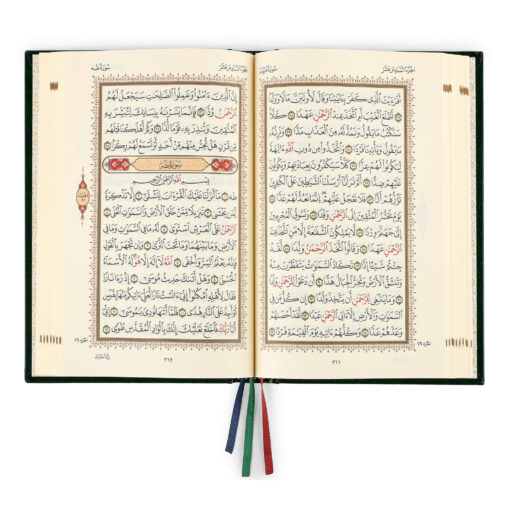 الجزء السادس عشر
سورة مريم
أَفَرَءَيْتَ ٱلَّذِى كَفَرَ بِـَٔايَـٰتِنَا وَقَالَ لَأُوتَيَنَّ مَالًا وَوَلَدًا
أَطَّلَعَ ٱلْغَيْبَ أَمِ ٱتَّخَذَ عِندَ ٱلرَّحْمَـٰنِ عَهْدًا كَلَّا
سَنَكْتُبُ مَا يَقُولُ وَنَمُدُّ لَهُۥ مِنَ ٱلْعَذَابِ مَدًّا وَنَرِثُهُۥ
مَا يَقُولُ وَيَأْتِينَا فَرْدًا وَٱتَّخَذُوا۟ مِن دُونِ ٱللَّهِ ءَالِهَةً
لِّيَكُونُوا۟ لَهُمْ عِزًّا كَلَّا سَيَكْفُرُونَ بِعِبَادَتِهِمْ وَيَكُونُونَ
عَلَيْهِمْ ضِدًّا أَلَمْ تَرَ أَنَّآ أَرْسَلْنَا ٱلشَّيَـٰطِينَ عَلَى ٱلْكَـٰفِرِينَ
تَؤُزُّهُمْ أَزًّا فَلَا تَعْجَلْ عَلَيْهِمْ إِنَّمَا نَعُدُّ لَهُمْ عَدًّا
يَوْمَ نَحْشُرُ ٱلْمُتَّقِينَ إِلَى ٱلرَّحْمَـٰنِ وَفْدًا وَنَسُوقُ ٱلْمُجْرِمِينَ
إِلَىٰ جَهَنَّمَ وِرْدًا لَّا يَمْلِكُونَ ٱلشَّفَـٰعَةَ إِلَّا مَنِ ٱتَّخَذَ عِندَ
ٱلرَّحْمَـٰنِ عَهْدًا وَقَالُوا۟ ٱتَّخَذَ ٱلرَّحْمَـٰنُ وَلَدًا لَّقَدْ
جِئْتُمْ شَيْـًٔا إِدًّا تَكَادُ ٱلسَّمَـٰوَٰتُ يَتَفَطَّرْنَ مِنْهُ
وَتَنشَقُّ ٱلْأَرْضُ وَتَخِرُّ ٱلْجِبَالُ هَدًّا أَن دَعَوْا۟ لِلرَّحْمَـٰنِ وَلَدًا
وَمَا يَنۢبَغِى لِلرَّحْمَـٰنِ أَن يَتَّخِذَ وَلَدًا إِن كُلُّ مَن فِى
ٱلسَّمَـٰوَٰتِ وَٱلْأَرْضِ إِلَّآ ءَاتِى ٱلرَّحْمَـٰنِ عَبْدًا لَّقَدْ أَحْصَىٰهُمْ
وَعَدَّهُمْ عَدًّا وَكُلُّهُمْ ءَاتِيهِ يَوْمَ ٱلْقِيَـٰمَةِ فَرْدًا
الجزء السادس عشر
سورة طه
إِنَّ ٱلَّذِينَ ءَامَنُوا۟ وَعَمِلُوا۟ ٱلصَّـٰلِحَـٰتِ سَيَجْعَلُ لَهُمُ
ٱلرَّحْمَـٰنُ وُدًّا فَإِنَّمَا يَسَّرْنَـٰهُ بِلِسَانِكَ لِتُبَشِّرَ بِهِ
ٱلْمُتَّقِينَ وَتُنذِرَ بِهِۦ قَوْمًا لُّدًّا وَكَمْ أَهْلَكْنَا قَبْلَهُم
مِّن قَرْنٍ هَلْ تُحِسُّ مِنْهُم مِّنْ أَحَدٍ أَوْ تَسْمَعُ لَهُمْ رِكْزًۢا
سورة طه
بِسْمِ ٱللَّهِ ٱلرَّحْمَـٰنِ ٱلرَّحِيمِ
طه مَآ أَنزَلْنَا عَلَيْكَ ٱلْقُرْءَانَ لِتَشْقَىٰٓ إِلَّا تَذْكِرَةً
لِّمَن يَخْشَىٰ تَنزِيلًا مِّمَّنْ خَلَقَ ٱلْأَرْضَ وَٱلسَّمَـٰوَٰتِ ٱلْعُلَى
ٱلرَّحْمَـٰنُ عَلَى ٱلْعَرْشِ ٱسْتَوَىٰ لَهُۥ مَا فِى ٱلسَّمَـٰوَٰتِ وَمَا
فِى ٱلْأَرْضِ وَمَا بَيْنَهُمَا وَمَا تَحْتَ ٱلثَّرَىٰ وَإِن تَجْهَرْ بِٱلْقَوْلِ
فَإِنَّهُۥ يَعْلَمُ ٱلسِّرَّ وَأَخْفَى ٱللَّهُ لَآ إِلَـٰهَ إِلَّا هُوَ لَهُ ٱلْأَسْمَآءُ
ٱلْحُسْنَىٰ وَهَلْ أَتَىٰكَ حَدِيثُ مُوسَىٰٓ إِذْ رَءَا نَارًا
فَقَالَ لِأَهْلِهِ ٱمْكُثُوٓا۟ إِنِّىٓ ءَانَسْتُ نَارًا لَّعَلِّىٓ ءَاتِيكُم مِّنْهَا بِقَبَسٍ
أَوْ أَجِدُ عَلَى ٱلنَّارِ هُدًى فَلَمَّآ أَتَىٰهَا نُودِىَ يَـٰمُوسَىٰٓ
إِنِّىٓ أَنَا۠ رَبُّكَ فَٱخْلَعْ نَعْلَيْكَ إِنَّكَ بِٱلْوَادِ ٱلْمُقَدَّسِ طُوًى